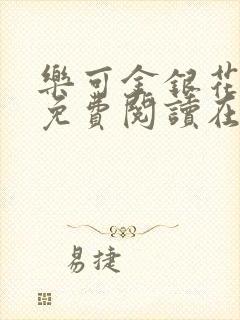 樂可金銀花
免費閱讀在
易捷